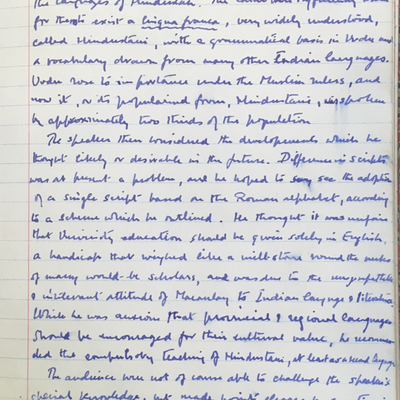 the languages of Hindustan. The
for there exist a lingua franca, very widely understood,
called Hindustani, with a grammatical basis in Urdu and
a vocabulary drawn from many other Indian languages.
Urdu rose to importance under the Muslim rulers, and
now it, or its popularised form, Hindustani, is spoken
by approximately two thirds of the population.
The speaker then considered the developments which he
thought likely or desirable in the future. Difference in scripts
was at present a problem, and he hoped to see the adoption
of a single script based on the Roman alphabet, according
to a scheme which he outlined. He thought it was unfair
that University education should be given solely in English,
a handicap that weighed like a millstone round the necks
of many would-be scholars, and was due to the unsympathetic
& intolerant attitude of Macaulay to Indian language & literature.
While he was anxious that provincial & regional languages
should be encouraged for their cultural value, he recommen-
ded the compulsory teaching of Hindustani, at least as a second language.
The audience were not of course able to challenge the speaker's
special knowledge, but made